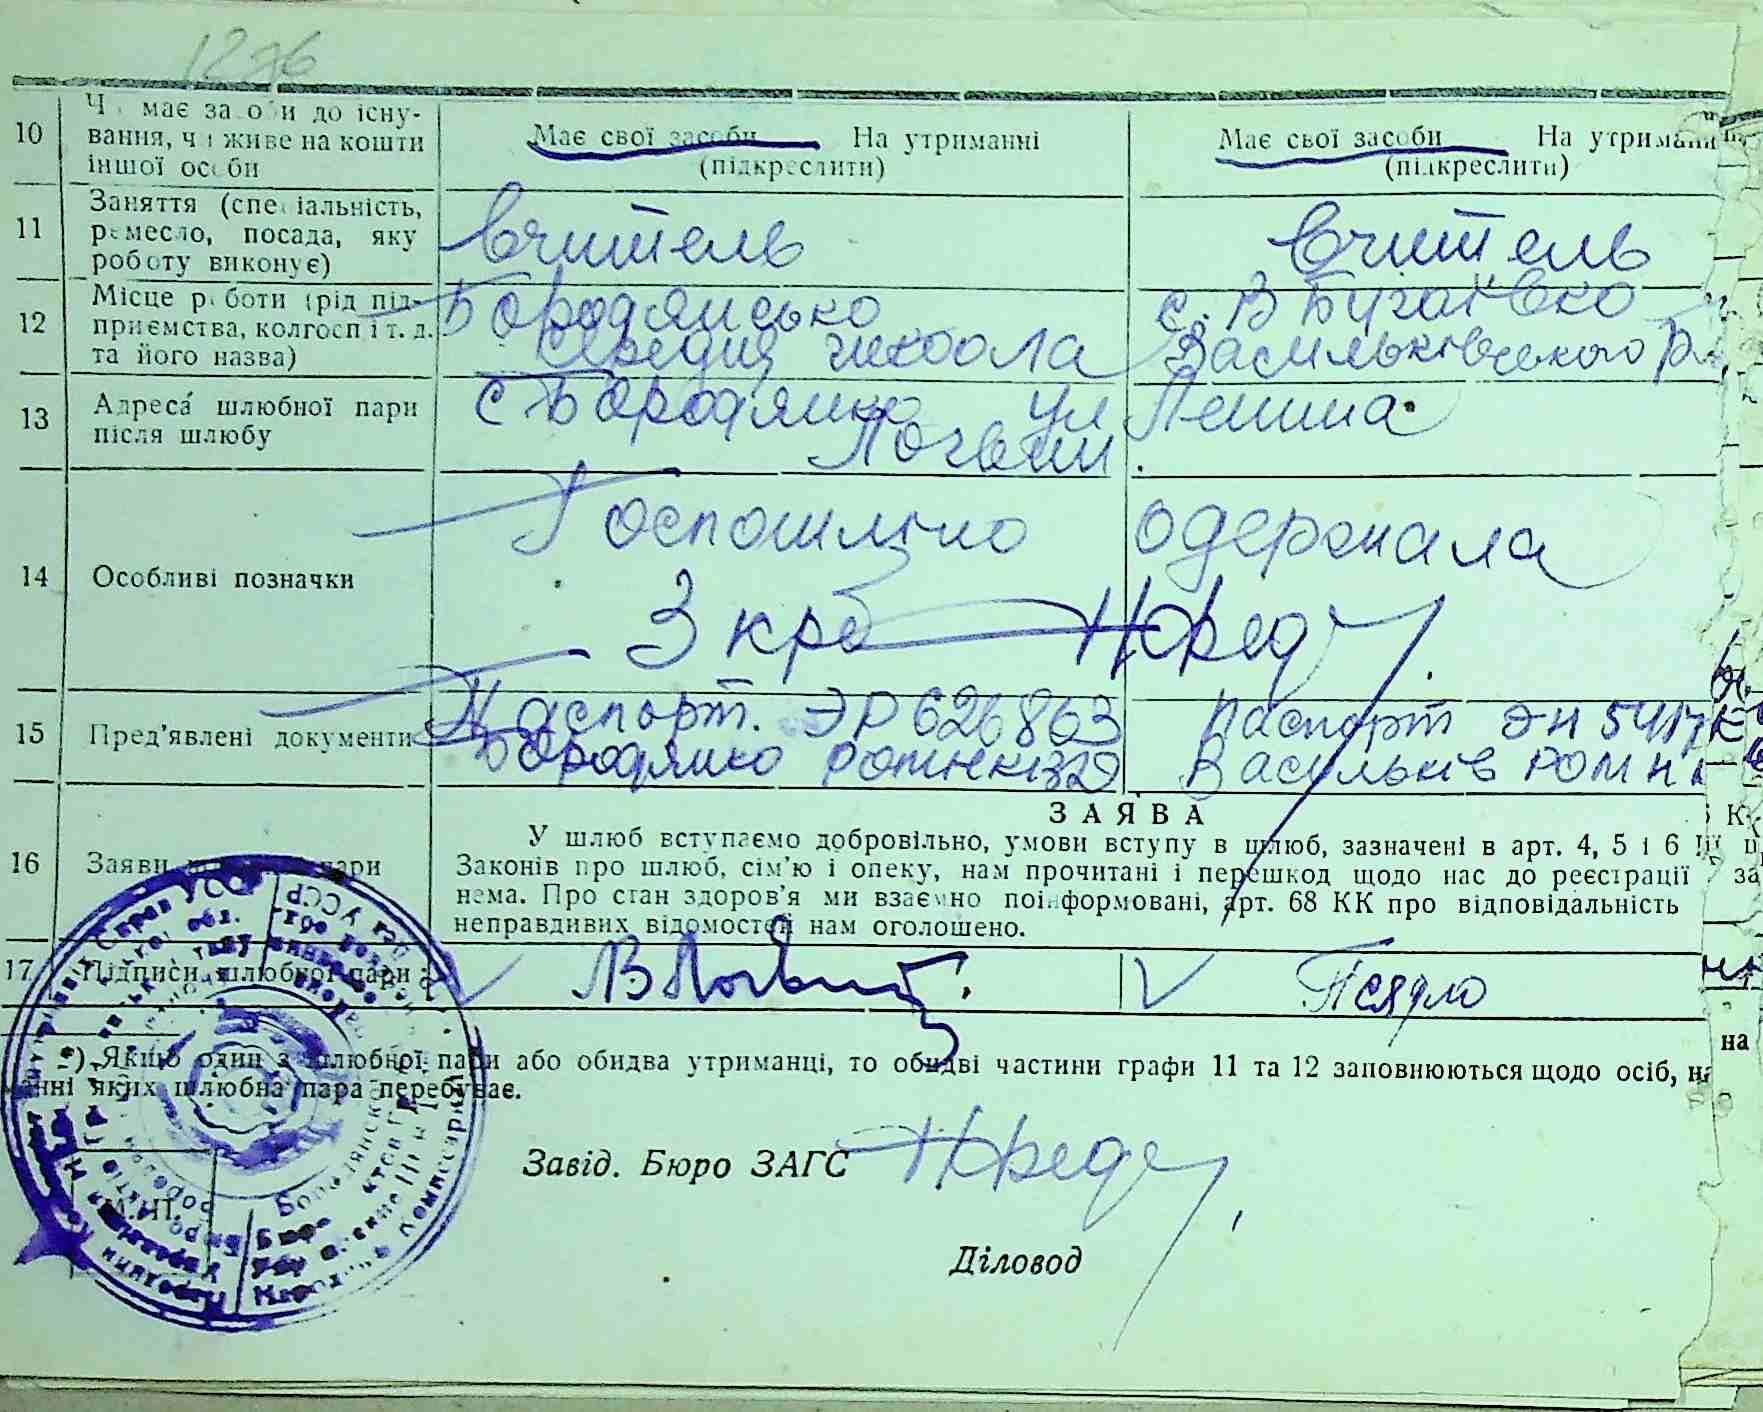 1276
10 Чи має засоби до існу-
вання, чи живе на кошти
іншої особи
Має свої засоби На утриманні
(підкреслити)
Має свої засоби На утриманні
(підкреслити)
11 Заняття (спеціальність,
ремесло, посада, яку
роботу виконує)
Вчитель
Вчитель
12 Місце роботи (рід під-
приємства, колгосп і т. д.
та його назва)
Бородянсько
середня школа
с. В Бугаївко
Васильківського р
13 Адреса шлюбної пари
після шлюбу
с Бородянко ул Ленина
14 Особливі позначки
Госпошліно одержала
3 крб
15 Пред'явлені документи
Паспорт. ЭР 626863
Бородянко
паспорт ЭН
Васильків
16 Заяви пари
ЗАЯВА
У шлюб вступаємо добровільно, умови вступу в шлюб, зазначені в арт. 4, 5 і 6 III
Законів про шлюб, сім'ю і опеку, нам прочитані і перешкод щодо нас до реєстрації
нема. Про стан здоров'я ми взаємно поінформовані, арт. 68 КК про відповідальність
неправдивих відомостей нам оголошено.
17 Підписи шлюбної пари
*) Якщо один з шлюбної пари або обидва утриманці, то обидві частини графи 11 та 12 заповнюються щодо осіб, на
анні яких шлюбна пара перебуває.
Завід. Бюро ЗАГС
М. П.
Діловод